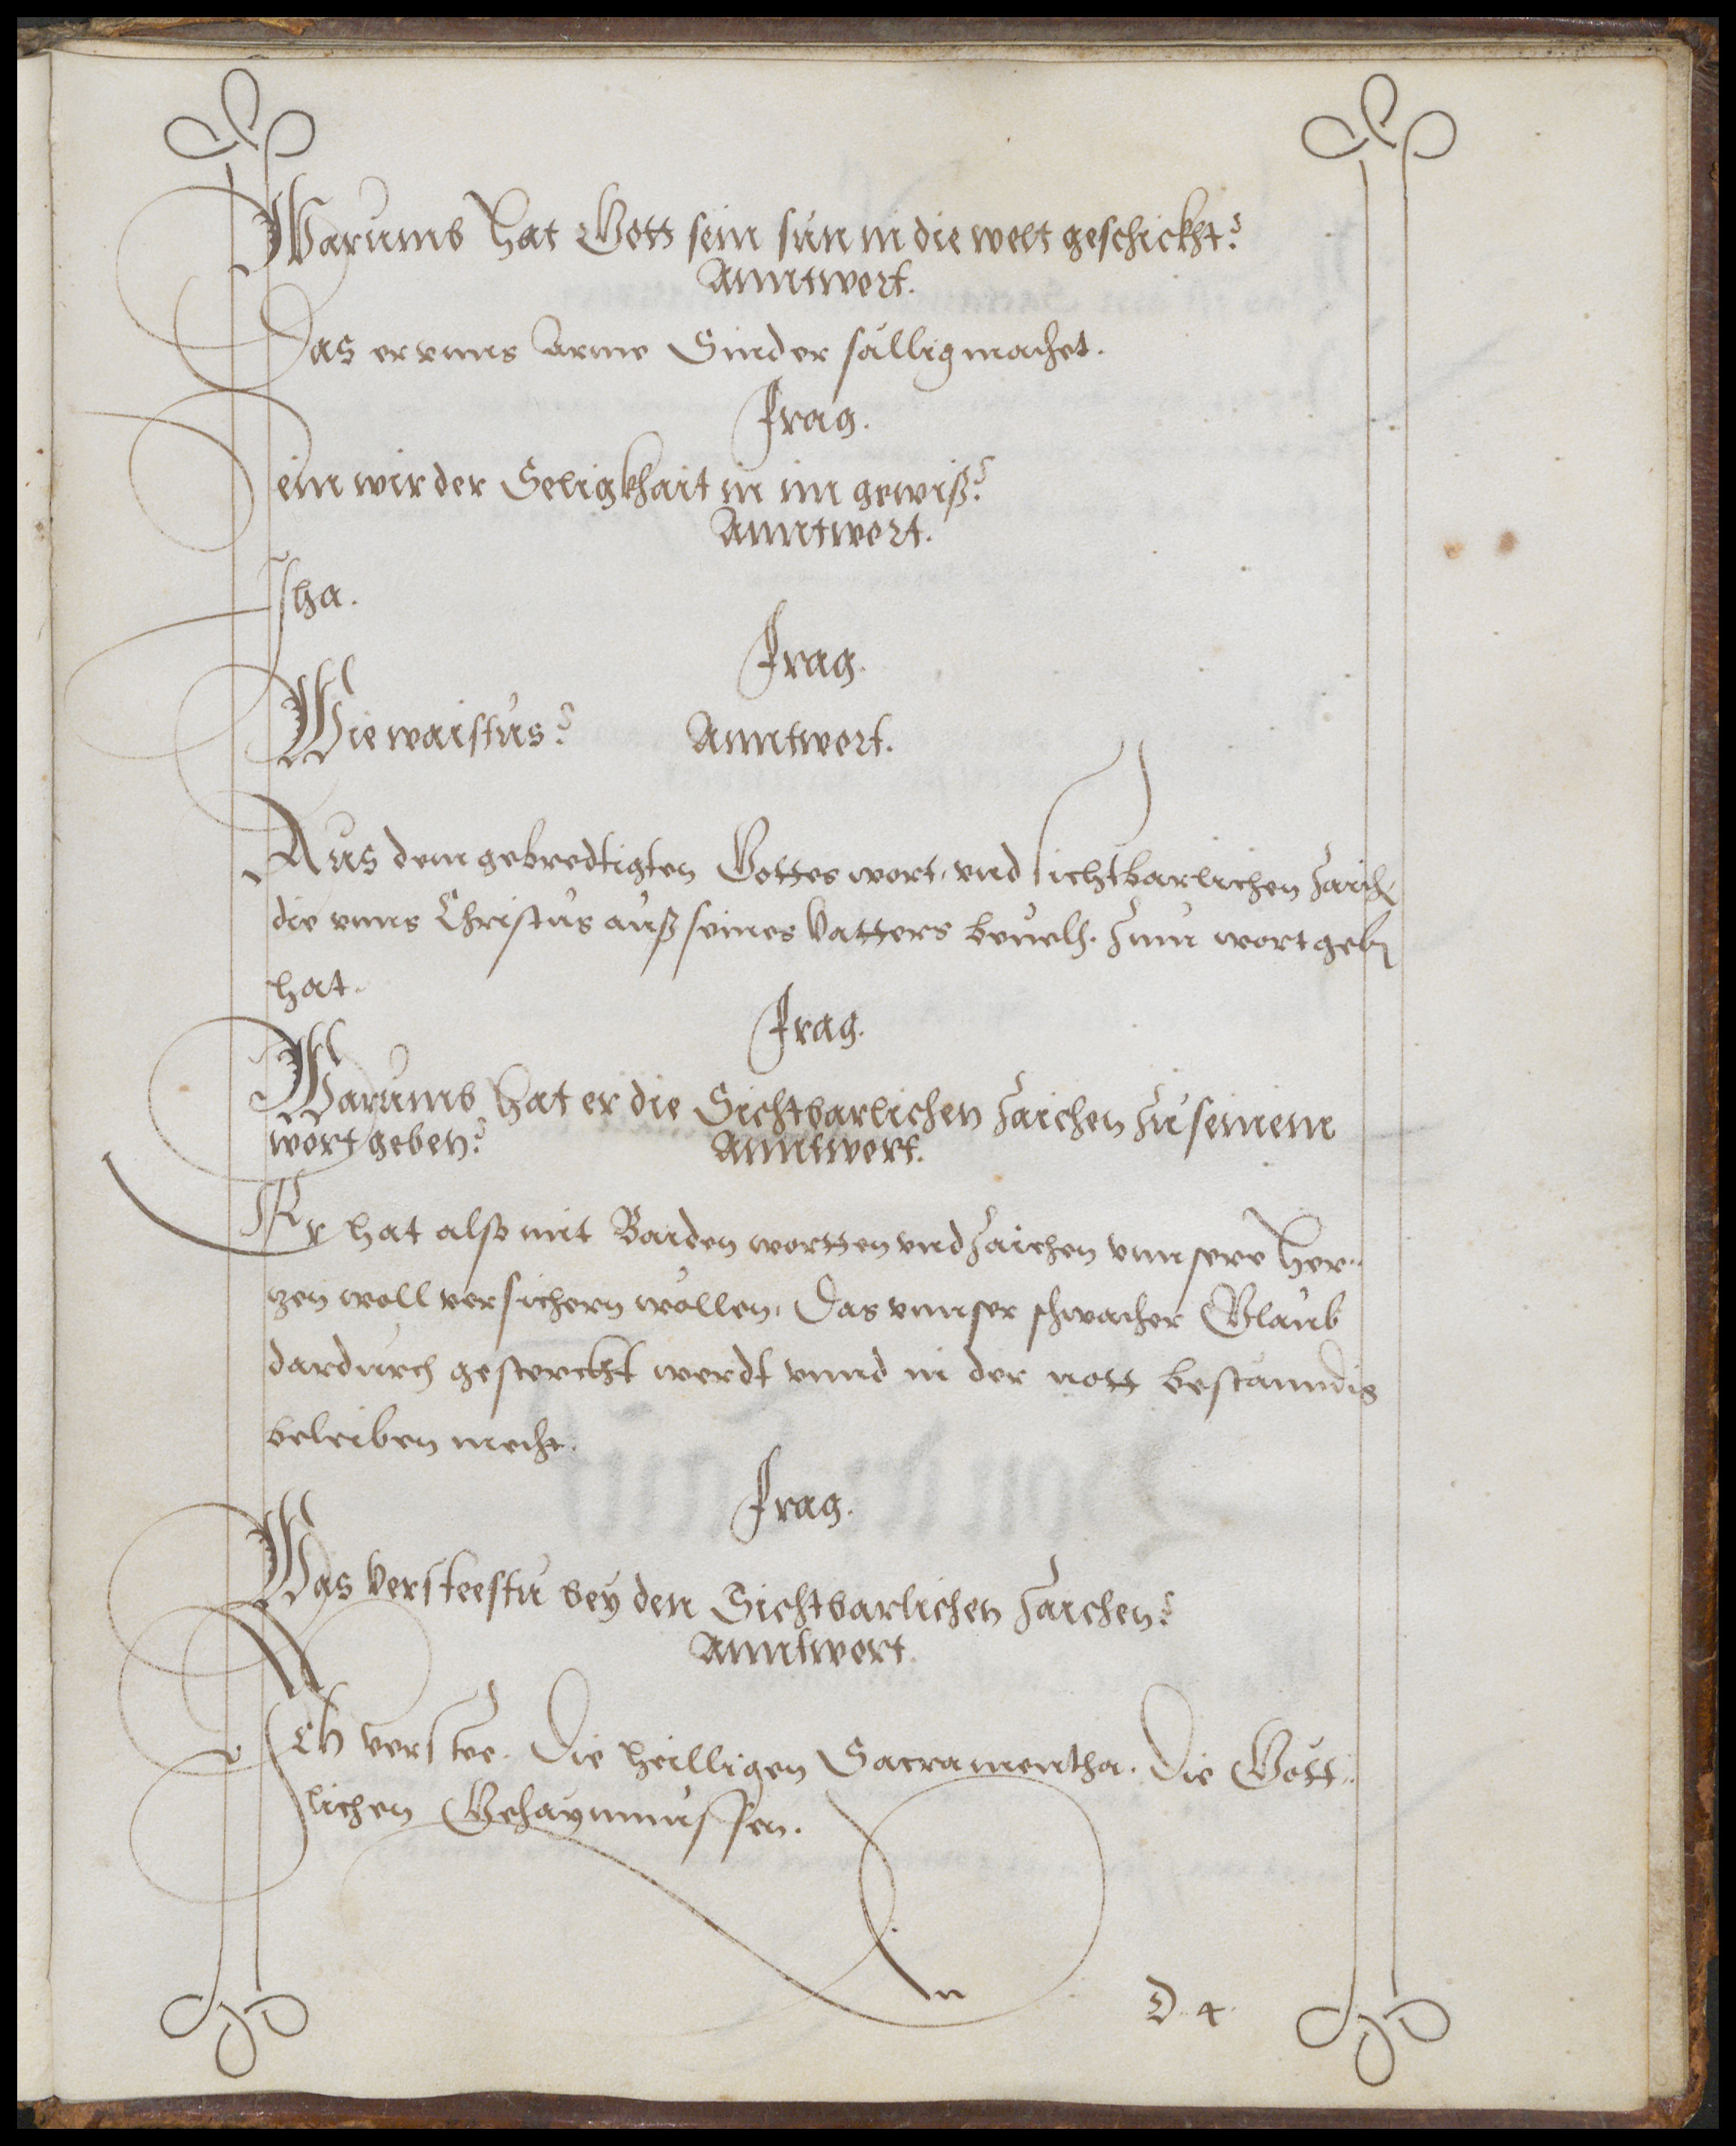 Warumb hat Gott sein sun in die welt geschickht?
Anntwort.
Das er vnns Arme Sinder sällig machet.
Frag.
Sein wir der Seligkhait in im gewiß?
Anntwort.
Jha.
Frag.
Wie waistus? Anntwort.
Aus dem gebredtigten Gottes wort, vnd sichtbarlichen zaich
die vnns Christus auß seines Vatters beuelh. zum wort gebn
hat.
Frag.
Warumb hat er die Sichtbarlichen zaichen zu seinem
wort geben?
Anntwort.
Er hat also mit Baiden wortten vnd zaichen vnnsere Her-
zen woll versichern wöllen. Das vnnser schwacher Glaub
dardurch gesterckht werdt vnnd in der nott bestanndig
beleiben mecht.
Frag.
Was versteestu bey den Sichtbarlichen zaichen?
Anntwort
Ich verstee. Die heilligen Sacramentha. Die Gött-
lichen Gehaymnussen.
D. 4.